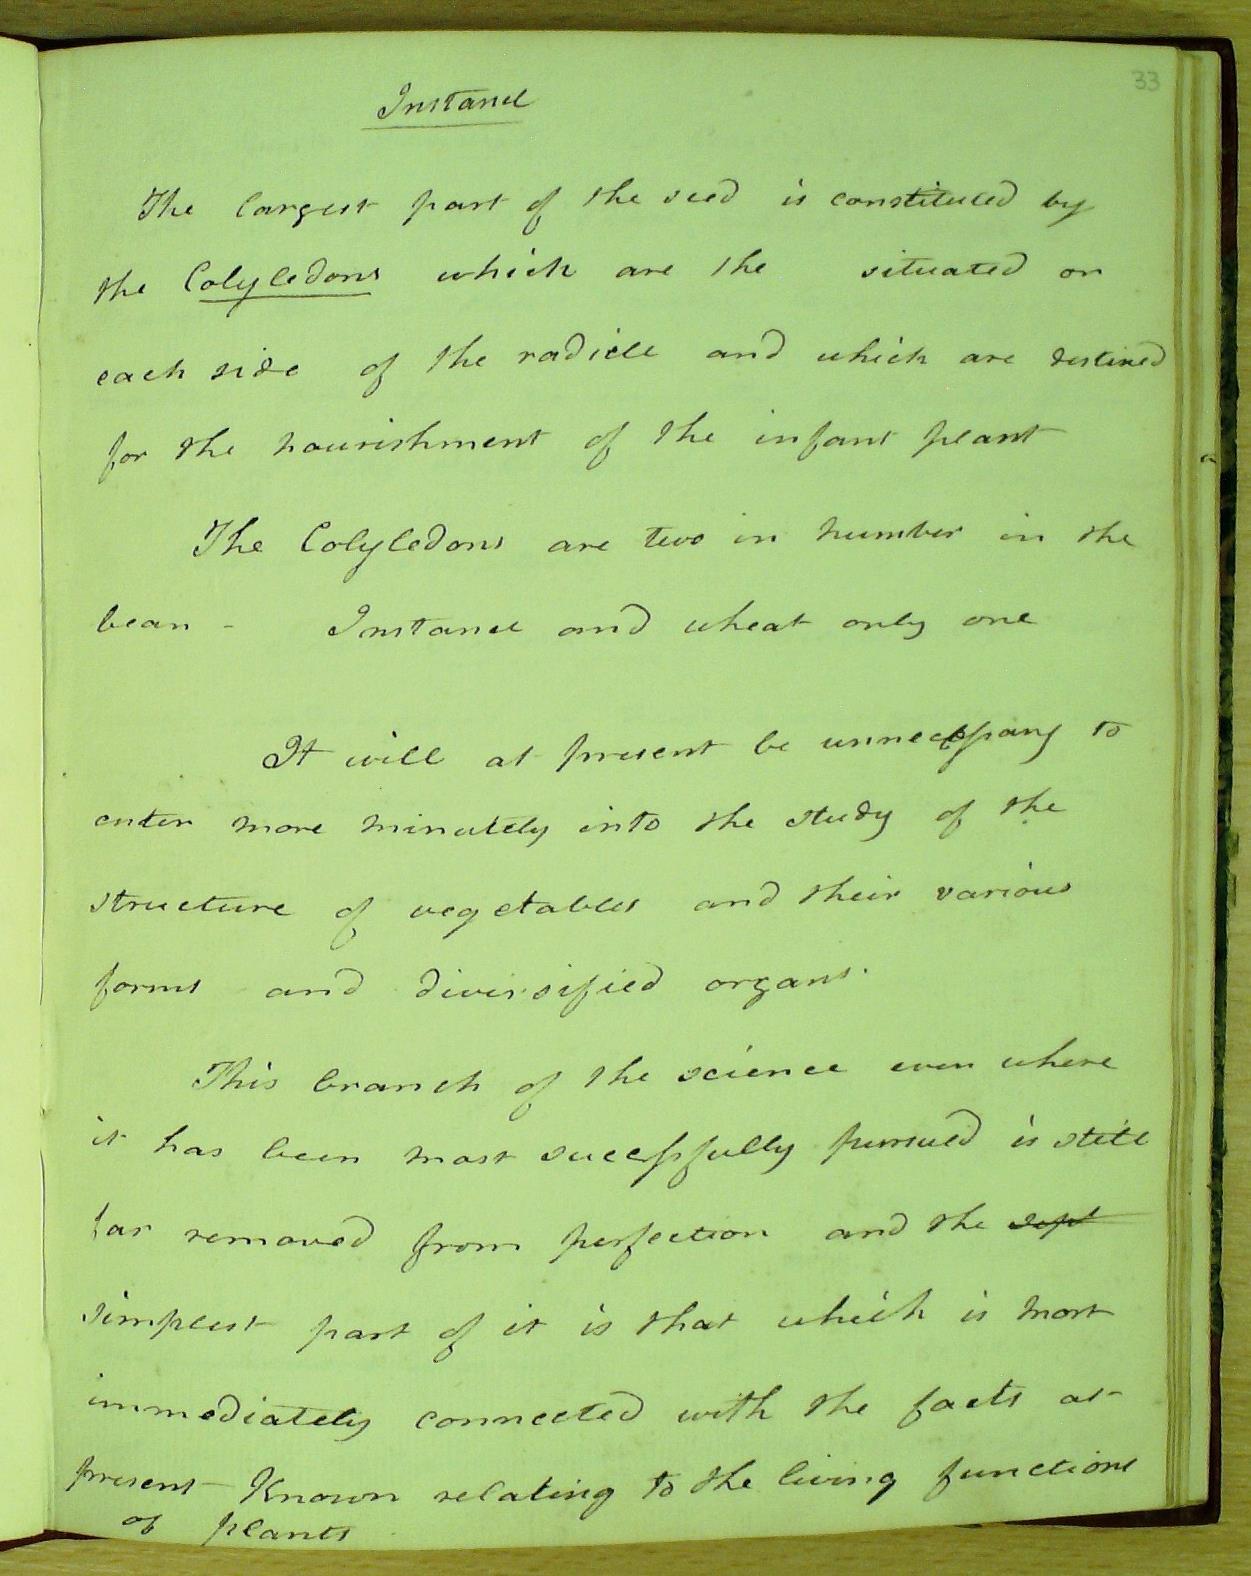 33
Instance
The largest part of the seed is constituted by
the Cotyledons which are the situated on
each side of the radicle and which are destined
for the nourishment of the infant plant
The Cotyledons are two in number in the
bean - Instance and wheat only one
It will at present be unnecessary to
enter more minutely into the study of the
structure of vegetables and their various
forms and diversified organs.
This branch of the science even where
it has been most successfully pursued is still
far removed from perfection and the
simplest part of it is that which is most
immediately connected with the facts at
present Known relating to the living functions
of plants